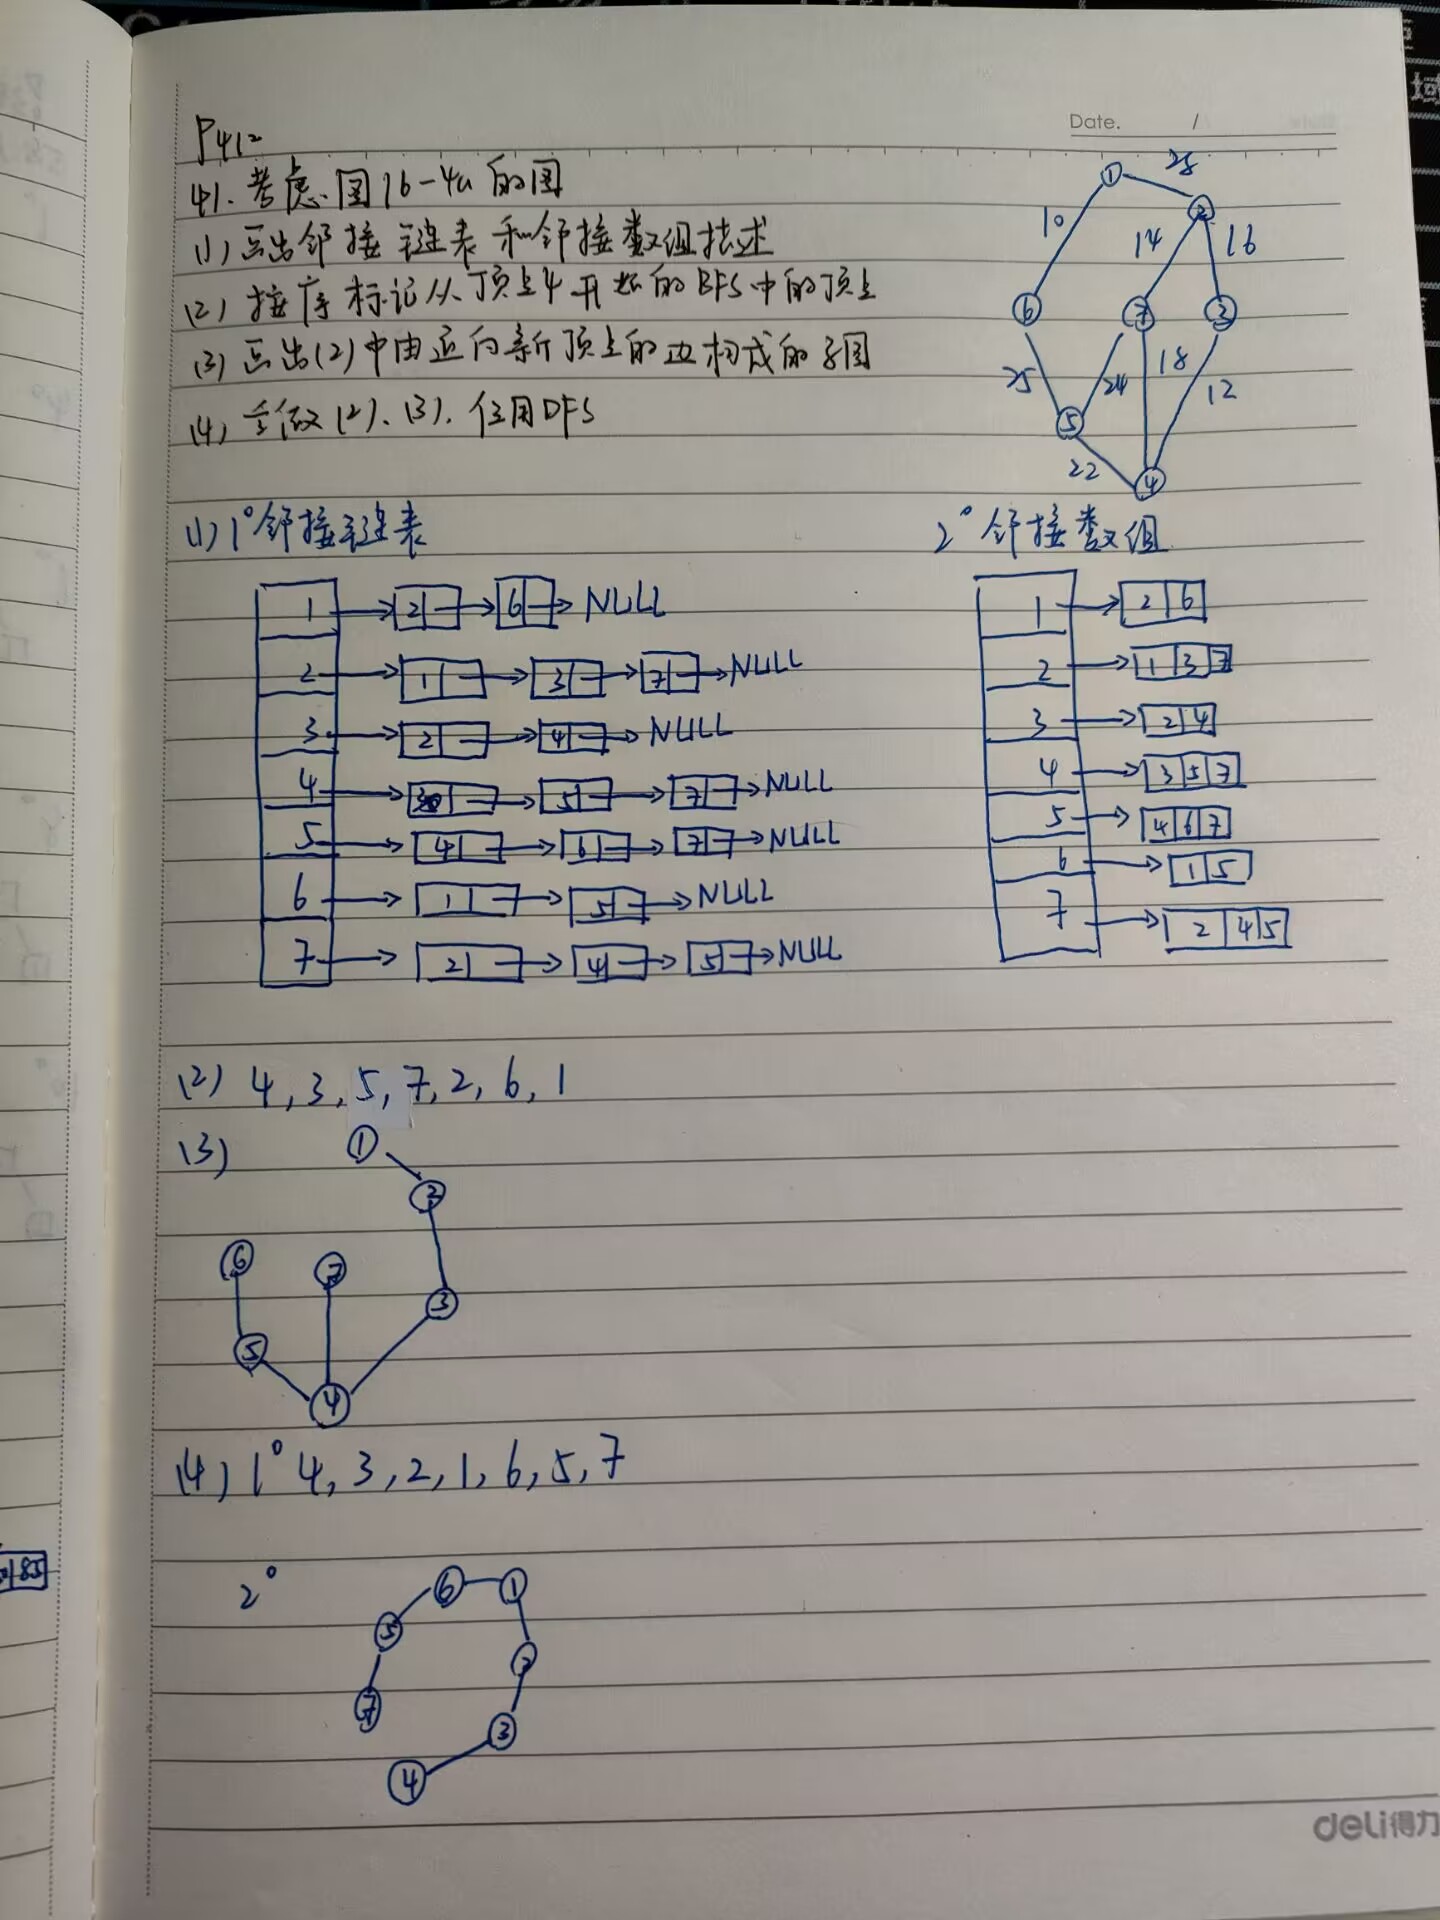 Date. /
P412
41. 考虑图16-4a的图
(1) 画出邻接链表和邻接数组描述
(2) 按序标记从顶点4开始的BFS中的顶点
(3) 画出(2)中由迈向新顶点的边构成的子图
(4) 重做(2)、(3). 使用DFS
① 28 ②
10 14 16
⑥ ⑦ ③
25 24 18 12
⑤ 22 ④
(1) 1° 邻接链表
1 2 6 NULL
2 1 3 7 NULL
3 2 4 NULL
4 3 5 7 NULL
5 4 6 7 NULL
6 1 5 NULL
7 2 4 5 NULL
2° 邻接数组
1 2 6
2 1 3 7
3 2 4
4 3 5 7
5 4 6 7
6 1 5
7 2 4 5
(2) 4, 3, 5, 7, 2, 6, 1
(3) ①
②
⑥ ⑦
③
⑤
④
(4) 1° 4, 3, 2, 1, 6, 5, 7
2° ⑥ ①
⑤
②
⑦ ③
④
85
deli得力
域